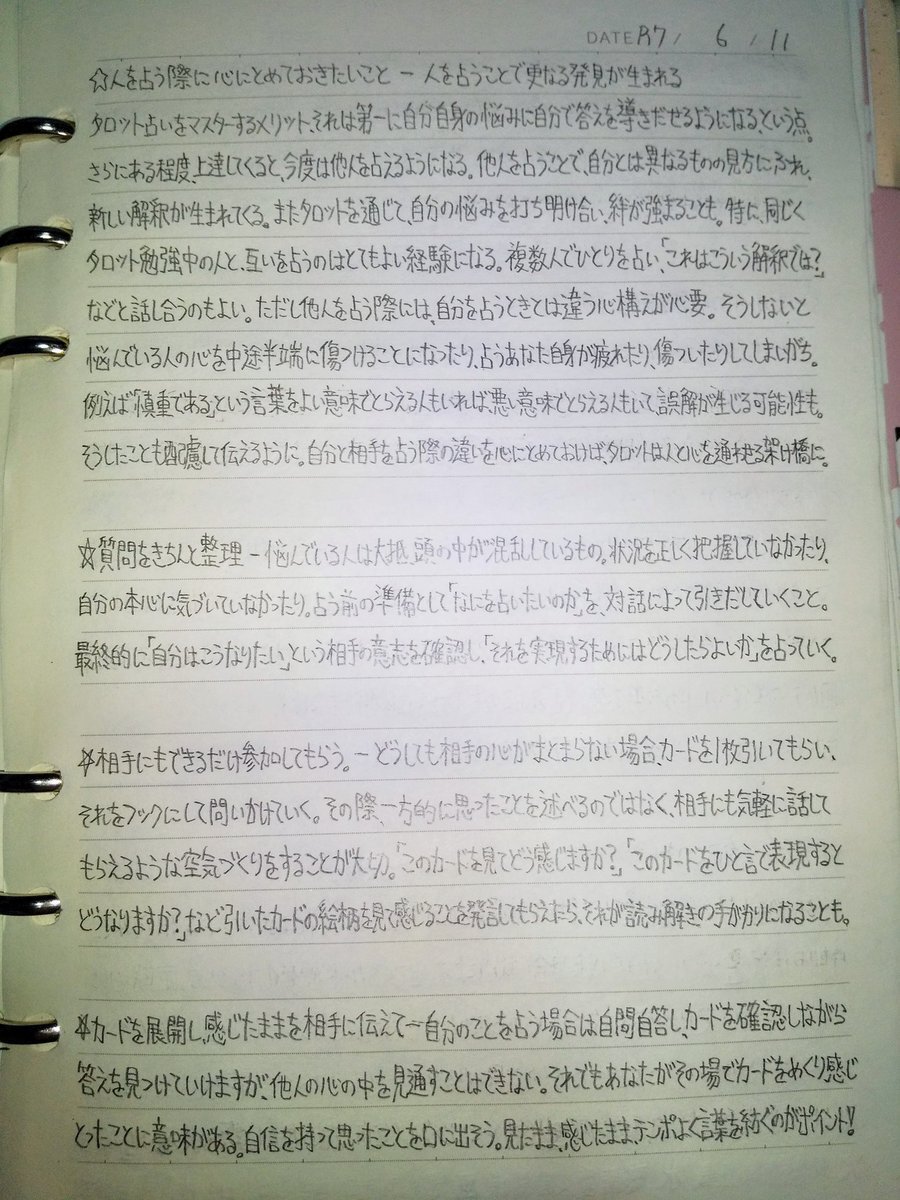 DATE R7 / 6 / 11
☆人を占う際に心にとめておきたいこと ー 人を占うことで更なる発見が生まれる
タロット占いをマスターするメリット、それは第一に自分自身の悩みに自分で答えを導きだせるようになる、という点。
さらにある程度、上達してくると、今度は他人を占えるようになる。他人を占うことで、自分とは異なるものの見方にふれ、
新しい解釈が生まれてくる。またタロットを通じて、自分の悩みを打ち明け合い、絆が強まることも。特に、同じく
タロット勉強中の人と、互いを占うのはとてもよい経験になる。複数人でひとりを占い、「これはこういう解釈では?」
などと話し合うのもよい。ただし他人を占う際には、自分を占うときとは違う心構えが必要。そうしないと
悩んでいる人の心を中途半端に傷つけることになったり、占うあなた自身が疲れたり、傷ついたりしてしまいがち。
例えば「慎重である」という言葉をよい意味でとらえる人もいれば、悪い意味でとらえる人もいて、誤解が生じる可能性も。
そうしたことも配慮して伝えるように。自分と相手を占う際の違いを心にとめておけば、タロットは人と心を通わせる架け橋に。
☆質問をきちんと整理 ー 悩んでいる人は大抵、頭の中が混乱しているもの。状況を正しく把握していなかったり、
自分の本心に気づいていなかったり。占う前の準備として「なにを占いたいのか」を、対話によって引きだしていくこと。
最終的に「自分はこうなりたい」という相手の意志を確認し、「それを実現するためにはどうしたらよいか」を占っていく。
☆相手にもできるだけ参加してもらう。ー どうしても相手の心がまとまらない場合、カードを1枚引いてもらい、
それをフックにして問いかけていく。その際、一方的に思ったことを述べるのではなく、相手にも気軽に話して
もらえるような空気づくりをすることが大切。「このカードを見てどう感じますか?」「このカードをひと言で表現すると
どうなりますか?」など引いたカードの絵柄を見て感じることを発言してもらえたら、それが読み解きの手がかりになることも。
☆カードを展開し、感じたままを相手に伝えて ー 自分のことを占う場合は自問自答し、カードを確認しながら
答えを見つけていけますが、他人の心の中を見通すことはできない。それでもあなたがその場でカードをめくり感じ
とったことに意味がある。自信を持って思ったことを口に出そう。見たまま、感じたままテンポよく言葉を紡ぐのがポイント!